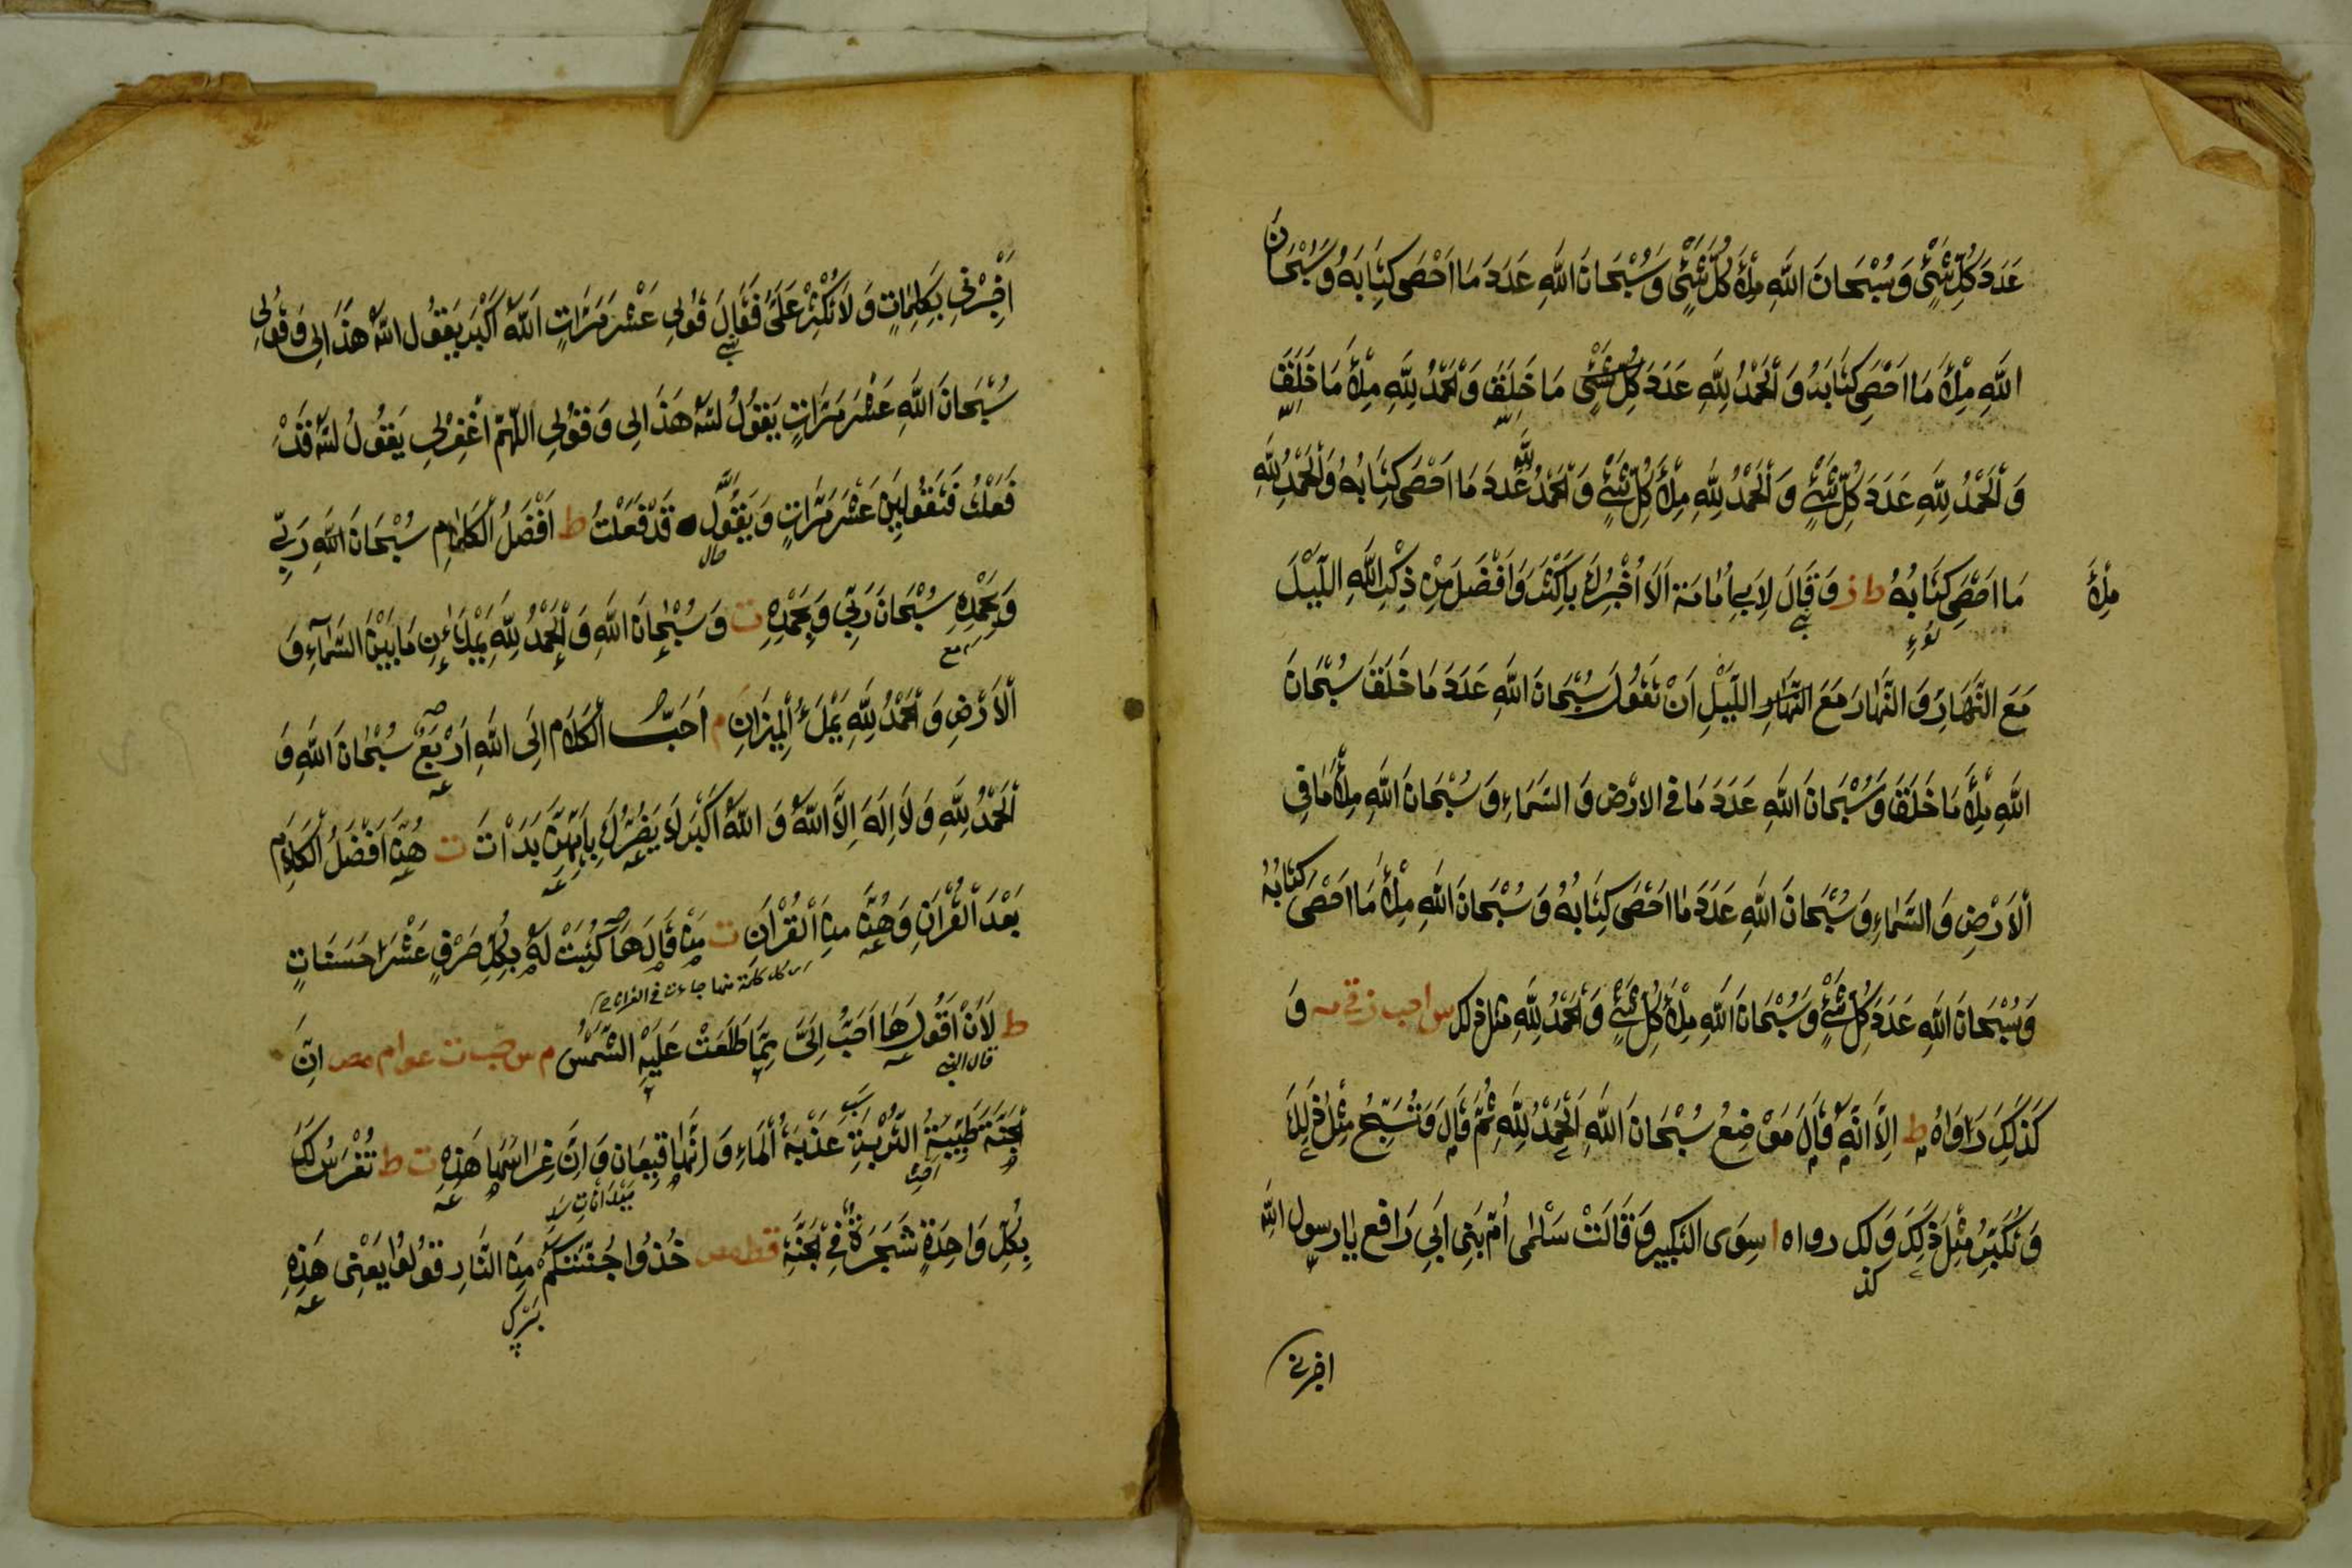 عَدَدَ كُلِّ شَيْءٍ وَسُبْحَانَ اللَّهِ مِلْأَ كُلِّ شَيْءٍ وَسُبْحَانَ اللَّهِ عَدَدَ مَا اَحْصَى كِتَابَهُ وَسُبْحَانَ
اللَّهِ مِلْأَ مَا اَحْصَى كِتَابَهُ وَ اَلْحَمْدُ لِلَّهِ عَدَدَ مَا خَلَقَ وَ اَلْحَمْدُ لِلَّهِ مِلْأَ مَا خَلَقَ
وَ اَلْحَمْدُ لِلَّهِ عَدَدَ كُلِّ شَيْءٍ وَ اَلْحَمْدُ لِلَّهِ مِلْأَ كُلِّ شَيْءٍ وَ اَلْحَمْدُ لِلَّهِ عَدَدَ مَا اَحْصَى كِتَابُهُ وَ اَلْحَمْدُ لِلَّهِ
مِلْأَ مَا اَحْصَى كِتَابُهُ ط ز وَ قَالَ لِاَبِي اُمَامَةَ اَلَا اُخْبِرُكَ بِاَكْثَرَ وَ اَفْضَلَ مِنْ ذِكْرِ اللَّهِ اللَّيْلَ
مَعَ النَّهَارِ وَ النَّهَارَ مَعَ اللَّيْلِ اَنْ تَقُولَ سُبْحَانَ اللَّهِ عَدَدَ مَا خَلَقَ سُبْحَانَ
اللَّهِ مِلْأَ مَا خَلَقَ وَ سُبْحَانَ اللَّهِ عَدَدَ مَا فِي الارْضِ وَ السَّمَاءِ وَ سُبْحَانَ اللَّهِ مِلْأَ مَا فِي
اَلارْضِ وَ السَّمَاءِ وَ سُبْحَانَ اللَّهِ عَدَدَ مَا اَحْصَى كِتَابُهُ وَ سُبْحَانَ اللَّهِ مِلْأَ مَا اَحْصَى كِتَابُهُ
وَ سُبْحَانَ اللَّهِ عَدَدَ كُلِّ شَيْءٍ وَ سُبْحَانَ اللَّهِ مِلْأَ كُلِّ شَيْءٍ وَ اَلْحَمْدُ لِلَّهِ مثل ذلك س ا حب ز وَ
كَذَلِكَ رَوَاهُ ط اِلَّا اَنَّهُ قَالَ مَوْضِعُ سُبْحَانَ اللَّهِ اَلْحَمْدُ لِلَّهِ ثُمَّ قَالَ وَ تُسَبِّحُ مِثْلَ ذَلِكَ
وَ تُكَبِّرُ مِثْلَ ذَلِكَ وَ كذلك رواه ا سِوَى التكبير وَ قَالَتْ سَلْمَى اُمُّ بَنِى اَبِي رَافِعٍ يَا رسول اللَّهِ
اخبرنى
اَخْبِرْنِي بِكَلِمَاتٍ وَ لَا تُكْثِرْ عَلَيَّ فَقَالَ قُولِي عَشْرَ مَرَّاتٍ اَللَّهُ اَكْبَر يَقُول اللَّهُ هَذَا لِي وَ قُولِي
سُبْحَانَ اللَّهِ عَشْرَ مَرَّاتٍ يَقُولُ اللهُ هَذَا لِي وَ قُولِي اللَّهُمَّ اغْفِرْ لِي يَقُولُ اللهُ قَدْ
فَعَلْتُ فَتَقُولِينَ عَشْرَ مَرَّاتٍ وَ يَقُولُ قَدْ فَعَلْتُ ط اَفْضَلُ الْكَلَامِ سُبْحَانَ اللَّهِ رَبِّي
وَ بِحَمْدِهِ سُبْحَانَ رَبِّي وَ بِحَمْدِهِ ت وَ سُبْحَانَ اللَّهِ وَ اَلْحَمْدُ لِلَّهِ يَمْلَاٰنِ مَا بَيْنَ السَّمَاءِ وَ
اَلْاَرْضِ وَ اَلْحَمْدُ لِلَّهِ يَمْلَأُ الْمِيزَانَ م اَحَبُّ الْكَلَامِ اِلَى اللَّهِ اَرْبَعٌ سُبْحَانَ اللَّهِ وَ
اَلْحَمْدُ لِلَّهِ وَ لَا اِلَهَ اِلَّا اللَّهُ وَ اللَّهُ اَكْبَر لَا يَضُرُّكَ بِاَيِّهِنَّ بَدَاْتَ ت هُنَّ اَفْضَلُ الْكَلَامِ
بَعْدَ الْقُرْاٰنِ وَ هُنَّ مِنَ الْقُرْاٰنِ ت مَنْ قَالَهَا كُتِبَتْ لَهُ بِكُلِّ حَرْفٍ عَشْرَ حَسَنَاتٍ
كل كلمة منها جاءت فى القرآن
ط لَاَنْ اَقُولَهَا اَحَبُّ اِلَيَّ مِمَّا طَلَعَتْ عَلَيْهِ الشَّمْسُ م س ت عو ا م مص اِنَّ
قال النبى
الْجَنَّةَ طَيِّبَةُ التُّرْبَةِ عَذْبَةُ الْمَاءِ وَ اَنَّهَا قِيعَان وَ اَنَّ غِرَاسَهَا هَذِهِ ت ط تُغْرَسُ لَكَ
بِكُلِّ وَاحِدَةٍ شَجَرَةٌ فِي الْجَنَّةِ ق ط مس خُذُوا جُنَّتَكُمْ مِنَ النَّارِ قُولُوا يَعْنِى هَذِهِ